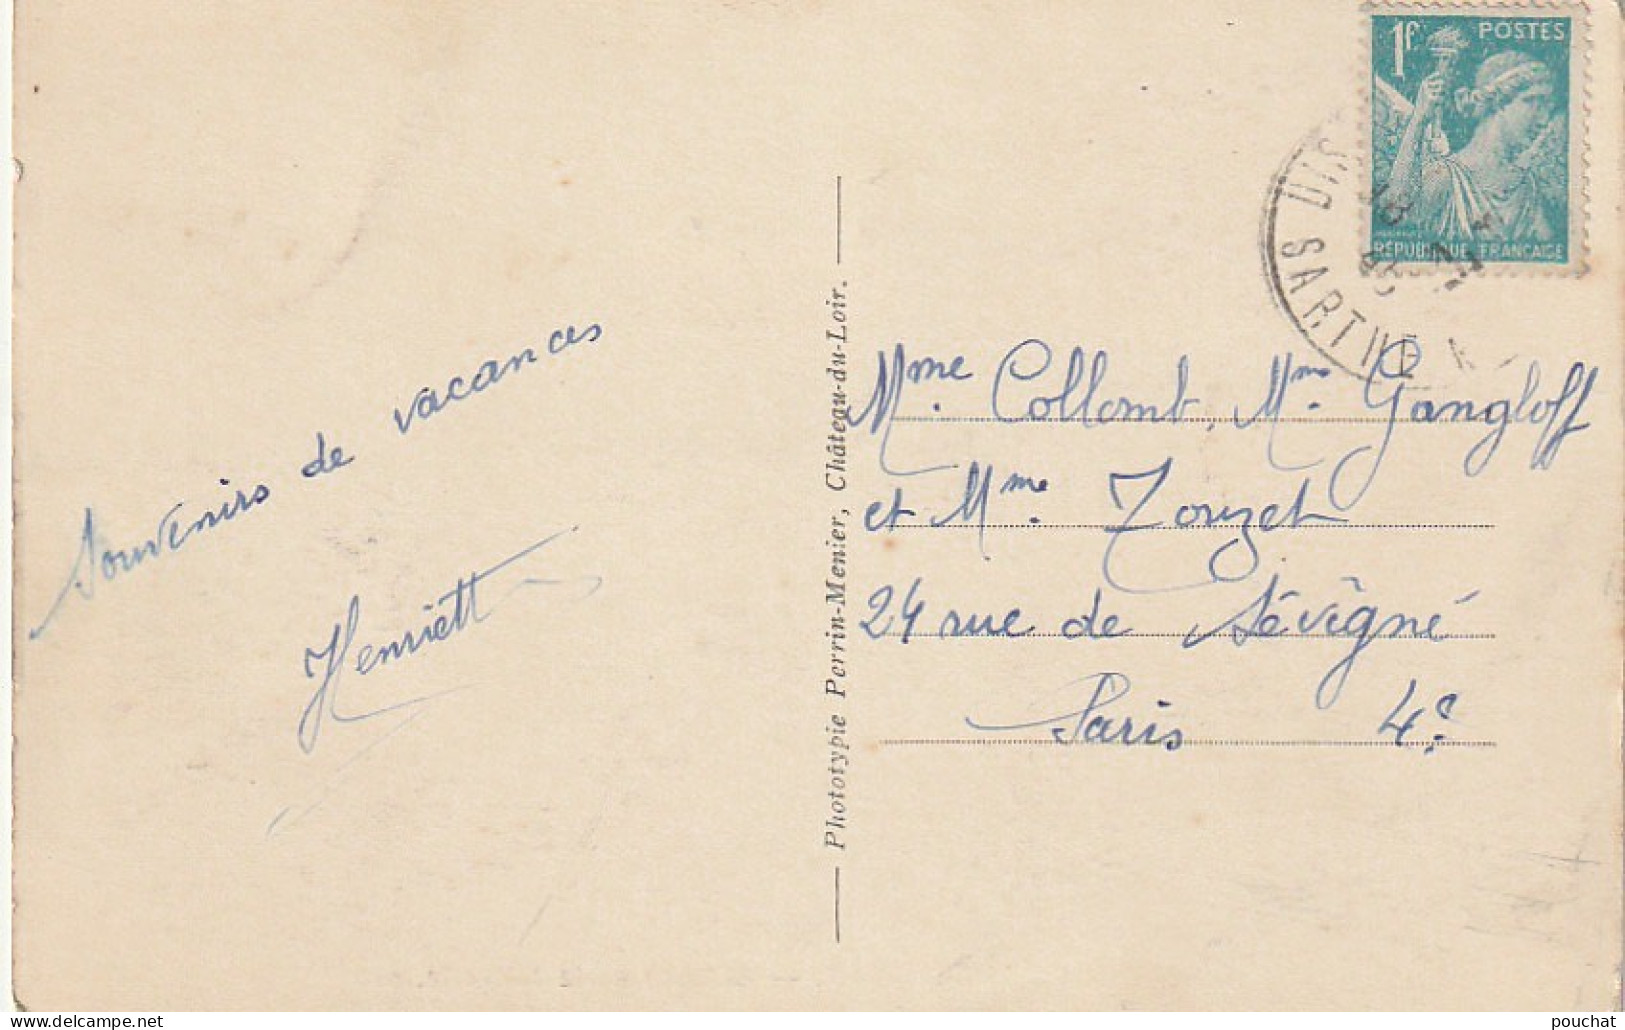 1f. POSTES
RÉPUBLIQUE FRANÇAISE
SARTHE
Souvenirs de vacances
Henriette
Phototypie Perrin-Menier, Château-du-Loir.
Mme. Collomb, Mme Gangloff
et Mme. Touzet
24 rue de Sévigné
Paris 4e.
pouchat